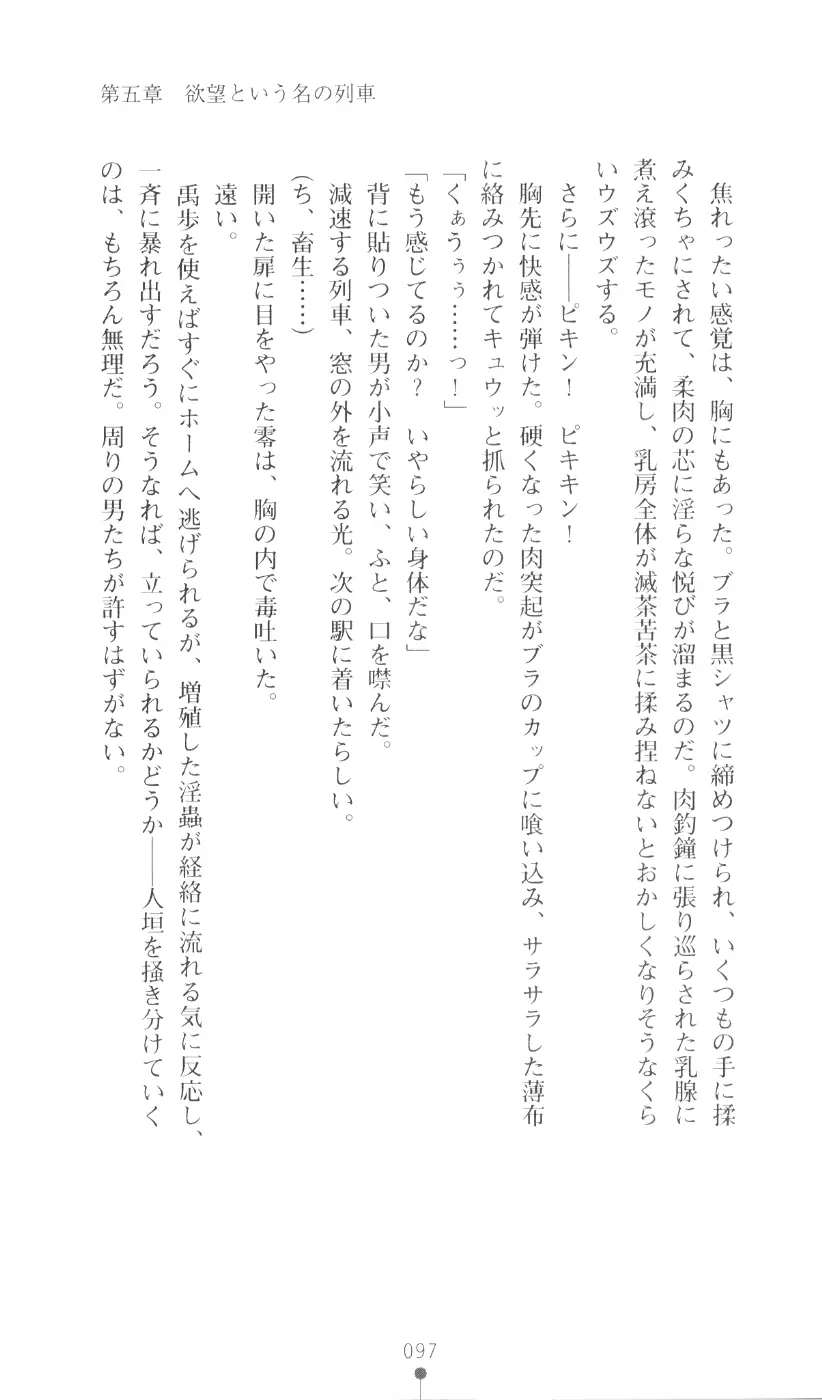 第五章　欲望という名の列車
焦れったい感覚は、胸にもあった。ブラと黒シャツに締めつけられ、いくつもの手に揉
みくちゃにされて、柔肉の芯に淫らな悦びが溜まるのだ。肉釣鐘に張り巡らされた乳腺に
煮え滾ったモノが充満し、乳房全体が滅茶苦茶に揉み捏ねないとおかしくなりそうなくら
いウズウズする。
さらに――ピキン！　ピキキン！
胸先に快感が弾けた。硬くなった肉突起がブラのカップに喰い込み、サラサラした薄布
に絡みつかれてキュウッと抓られたのだ。
「くぁうぅぅ……っ！」
「もう感じてるのか？　いやらしい身体だな」
背に貼りついた男が小声で笑い、ふと、口を噤んだ。
減速する列車、窓の外を流れる光。次の駅に着いたらしい。
（ち、畜生……）
開いた扉に目をやった零は、胸の内で毒吐いた。
遠い。
禹歩を使えばすぐにホームへ逃げられるが、増殖した淫蟲が経絡に流れる気に反応し、
一斉に暴れ出すだろう。そうなれば、立っていられるかどうか――人垣を掻き分けていく
のは、もちろん無理だ。周りの男たちが許すはずがない。
097